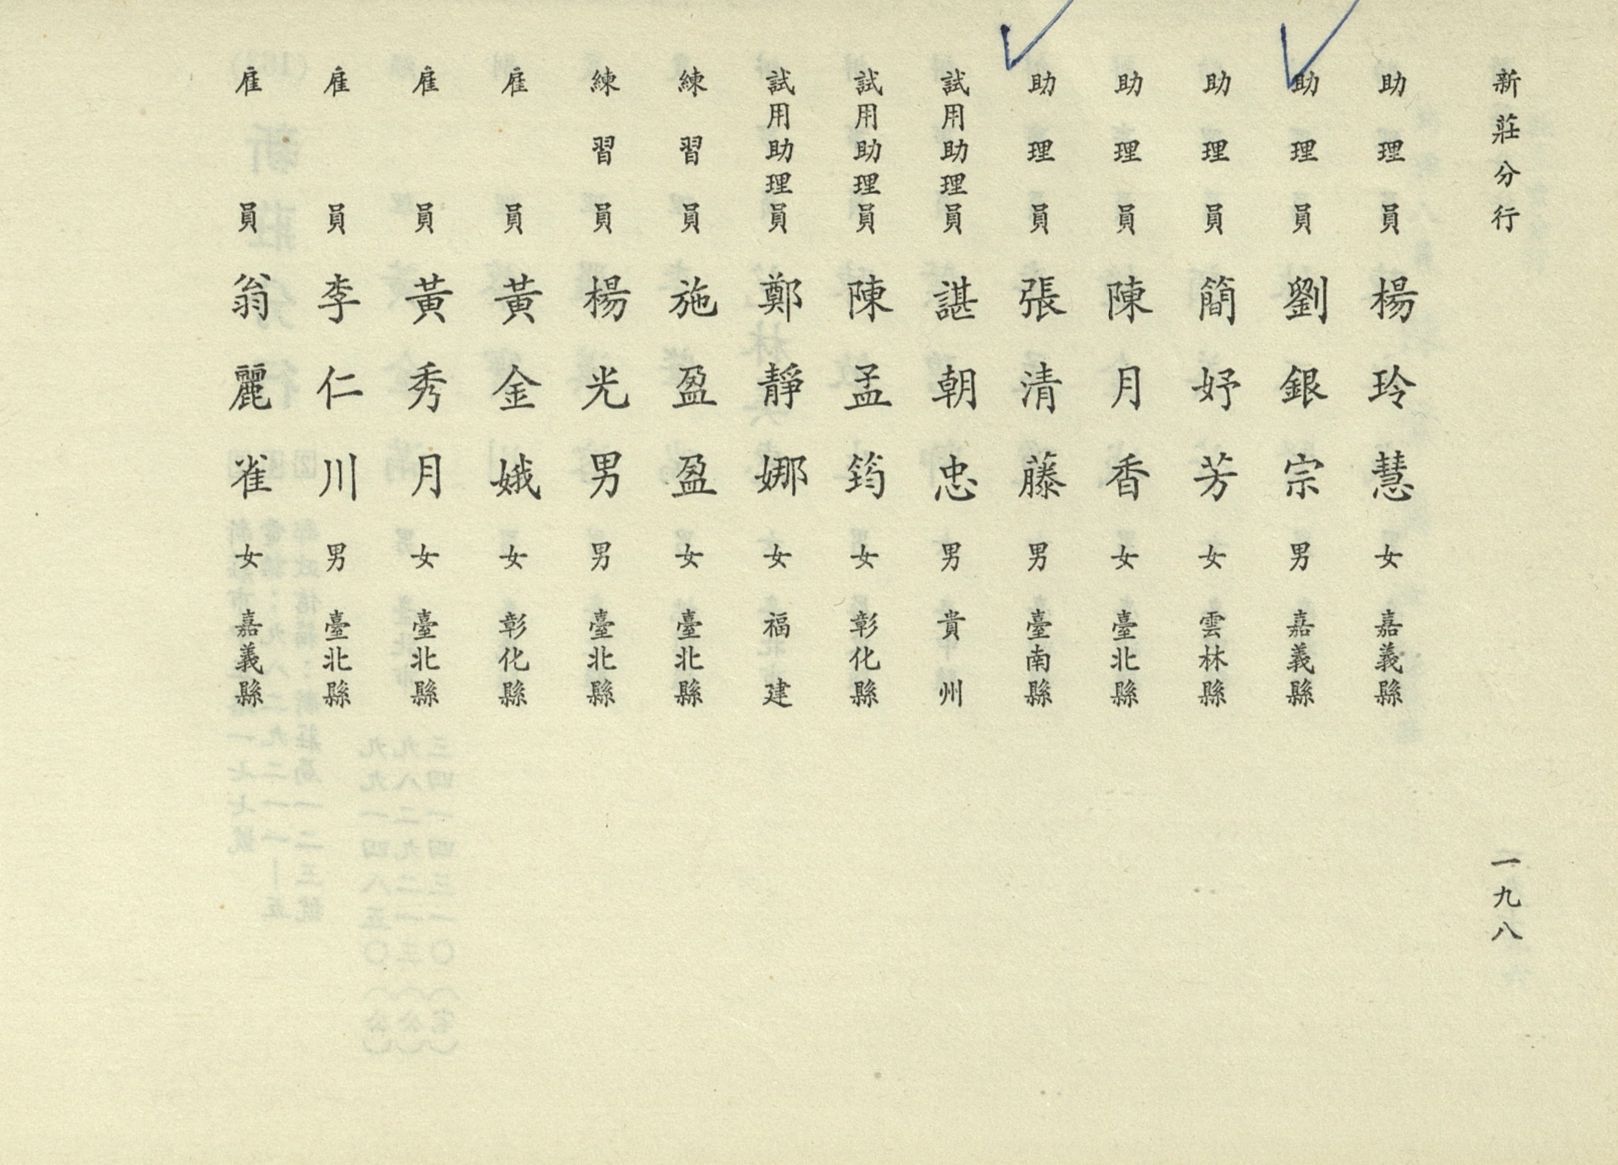 新莊分行
一九八
助理員 楊玲慧 女 嘉義縣
助理員 劉銀宗 男 嘉義縣
助理員 簡妤芳 女 雲林縣
助理員 陳月香 女 臺北縣
助理員 張清藤 男 臺南縣
試用助理員 諶朝忠 男 貴州
試用助理員 陳孟筠 女 彰化縣
試用助理員 鄭靜娜 女 福建
練習員 施盈盈 女 臺北縣
練習員 楊光男 男 臺北縣
雇員 黃金娥 女 彰化縣
雇員 黃秀月 女 臺北縣
雇員 李仁川 男 臺北縣
雇員 翁麗雀 女 嘉義縣